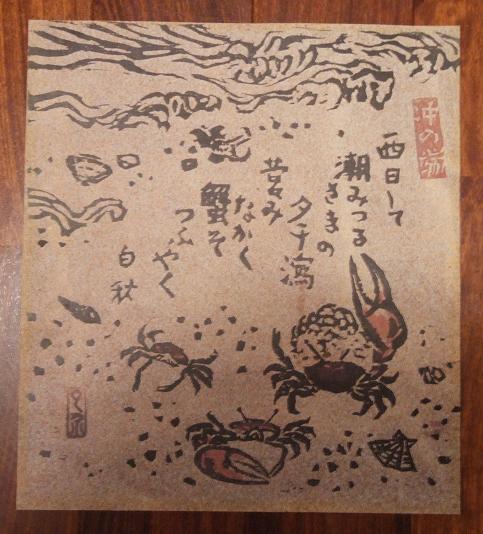 沖の端
西日して
潮みつる
さまの
夕干潟
営み
なかく
蟹そ
つふ
やく
白秋